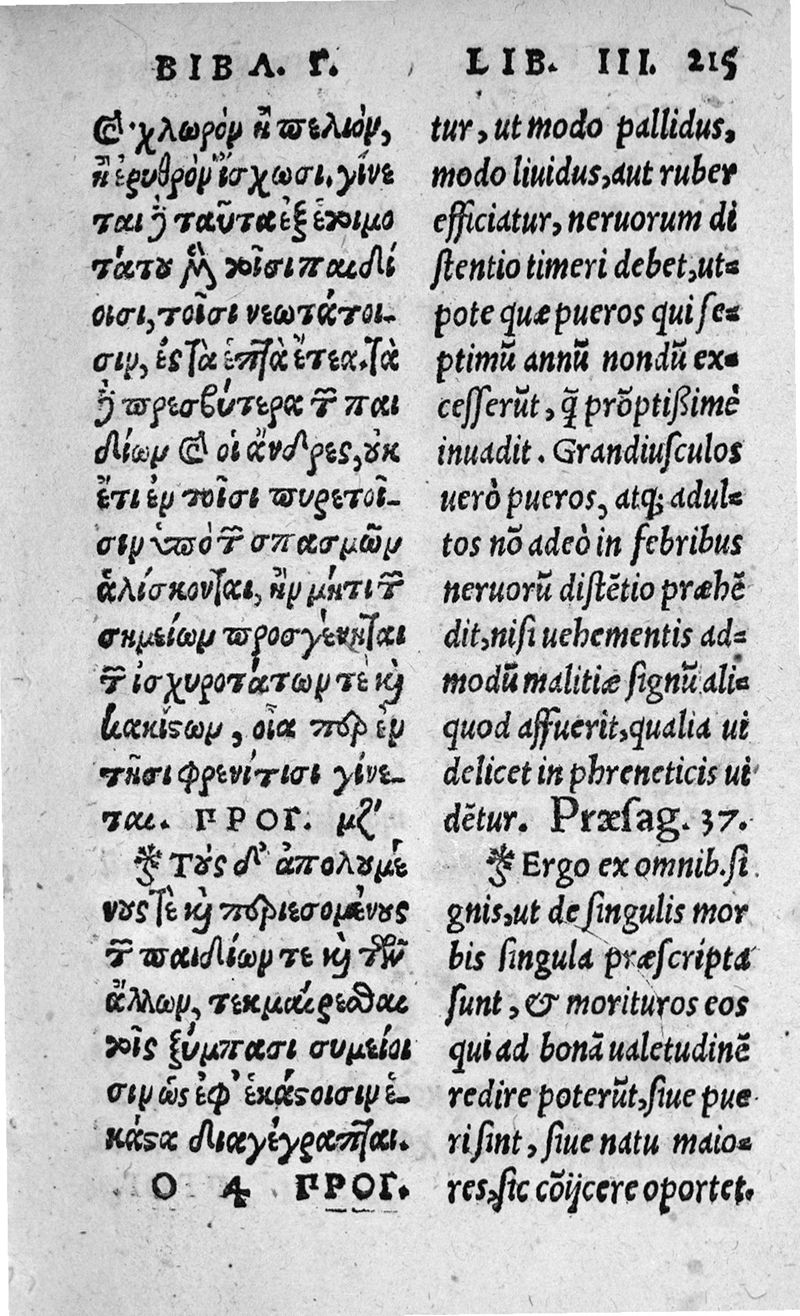 ΒΙΒΛ. Γ.
ϗ χλωρὸν ἢ πελιὸν,
ἢ ἐρυθρὸν ἴσχωσι. γίνε
ται δὲ ταῦτα ἐξ ἑτοιμο
τάτου μὲν τοῖσι παιδί
οισι, τοῖσι νεωτάτοι-
σιν, ἐς τὰ ἑπτὰ ἔτεα. τὰ
δὲ πρεσβύτερα τῶν παι
δίων ϗ οἱ ἄνδρες, οὐκ
ἔτι ἐν τοῖσι πυρετοῖ-
σιν ὑπὸ τῶν σπασμῶν
ἁλίσκονται, ἢν μήτι τῶν
σημείων προσγένηται
τῶν ἰσχυροτάτων τε ϗ
κακίστων, οἷα περ ἐν
τῇσι φρενίτισι γίνε-
ται. ΠΡΟΓ. μζ′
Τοὺς δ' ἀπολυμέ
νους τε ϗ περιεσομένους
τῶν παιδίων τε ϗ τῶν
ἄλλων, τεκμαίρεσθαι
τοῖς ξύμπασι συμείοι
σιν ὡς ἐφ' ἑκάστοισιν ἕ-
καστα διαγέγραπται.
O 4 ΠΡΟΓ.
LIB. III. 215
tur, ut modo pallidus,
modo liuidus, aut ruber
efficiatur, neruorum di
ſtentio timeri debet, ut-
pote quæ pueros qui ſe-
ptimũ annũ nondũ ex-
ceſſerũt, q̃ prõptißimè
inuadit. Grandiuſculos
uerò pueros, atq; adul-
tos nõ adeò in febribus
neruorũ diſtẽtio præhẽ
dit, niſi uehementis ad-
modũ malitiæ ſignũ ali-
quod affuerit, qualia ui
delicet in phreneticis ui
dẽtur. Præſag. 37.
Ergo ex omnib. ſi
gnis, ut de ſingulis mor
bis ſingula præſcripta
ſunt, & morituros eos
qui ad bonã ualetudinẽ
redire poterũt, ſiue pue
ri ſint, ſiue natu maio-
res, ſic cõijcere oportet.